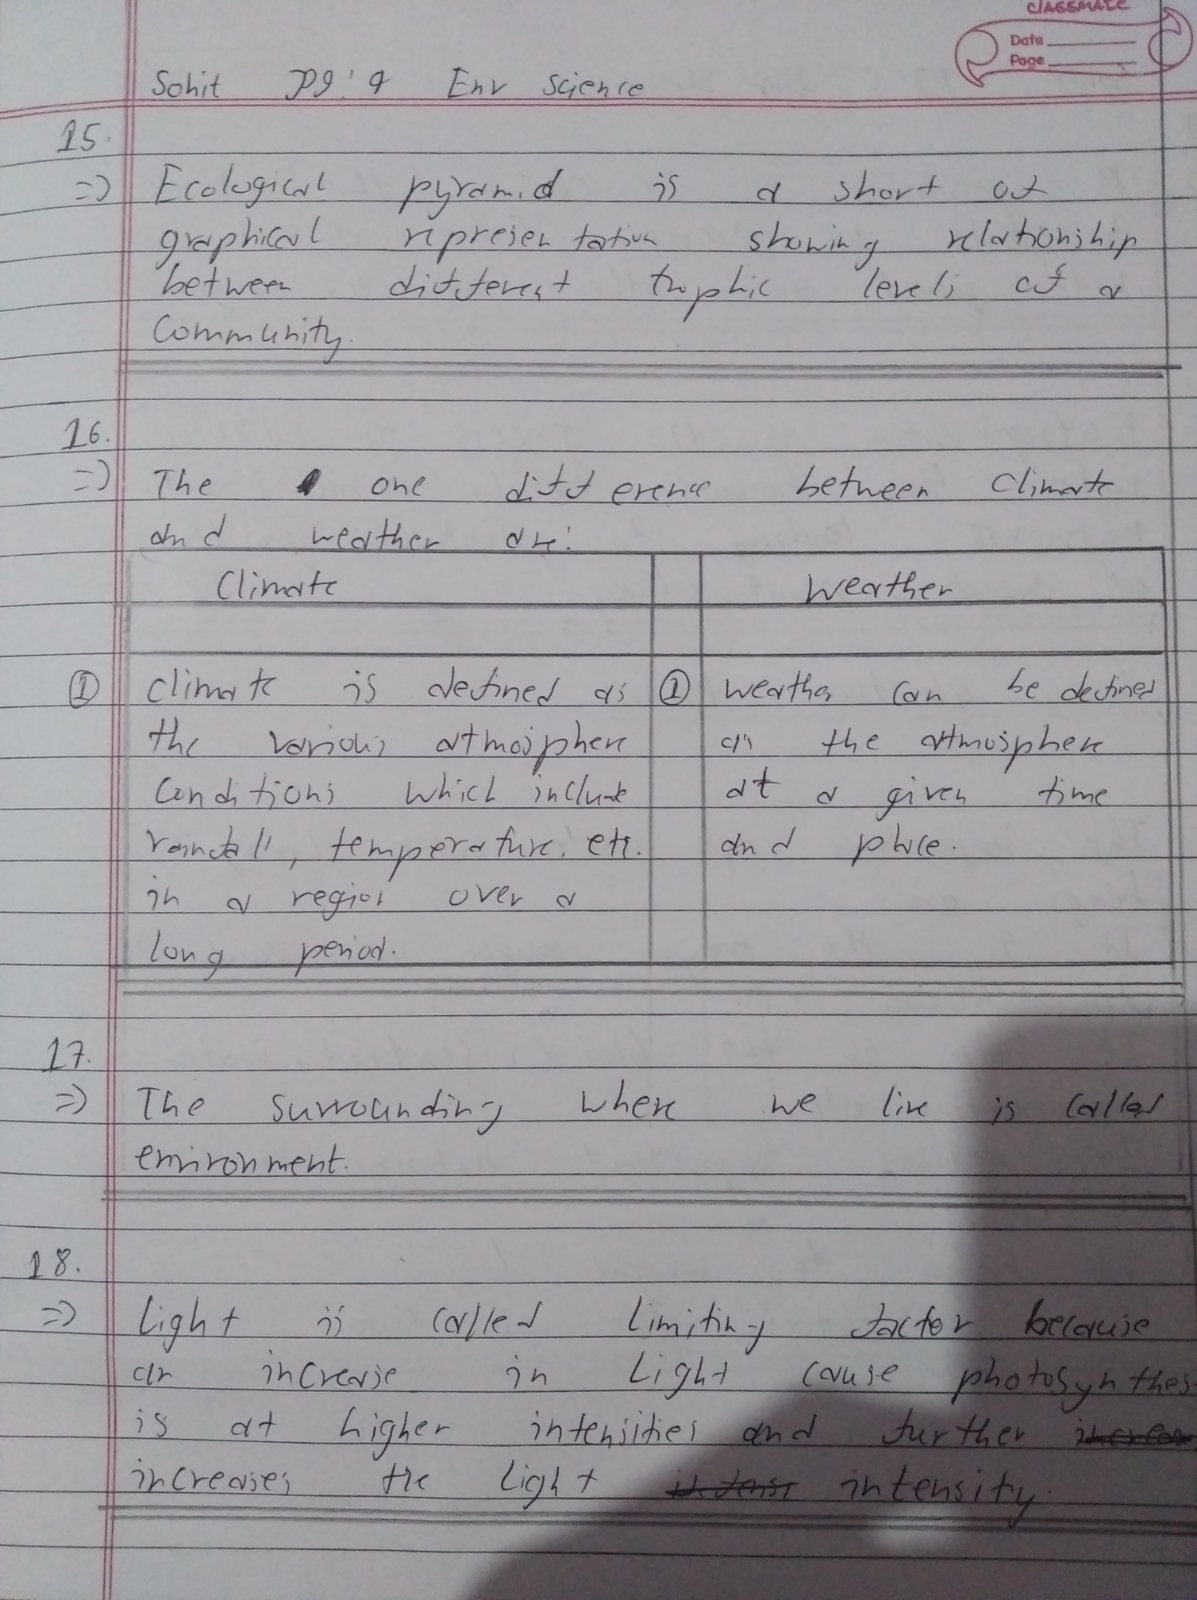 classmate
Date
Page
Sohit Pg: 9 Env Science
15.
=> Ecological pyramid is a short of
graphical representation showing relationship
between different trophic levels of a
Community.
16.
=> The one difference between Climate
and weather are:
Climate Weather
① Climate is defined as
the various atmosphere
conditions which include
rainfall, temperature, etc.
in a region over a
long period.
① Weather can be defined
as the atmosphere
at a given time
and place.
17.
=> The surrounding where we live is called
environment.
18.
=> Light is called limiting factor because
an increase in Light cause photosynthes
is at higher intensities and further
increases the light intensity.